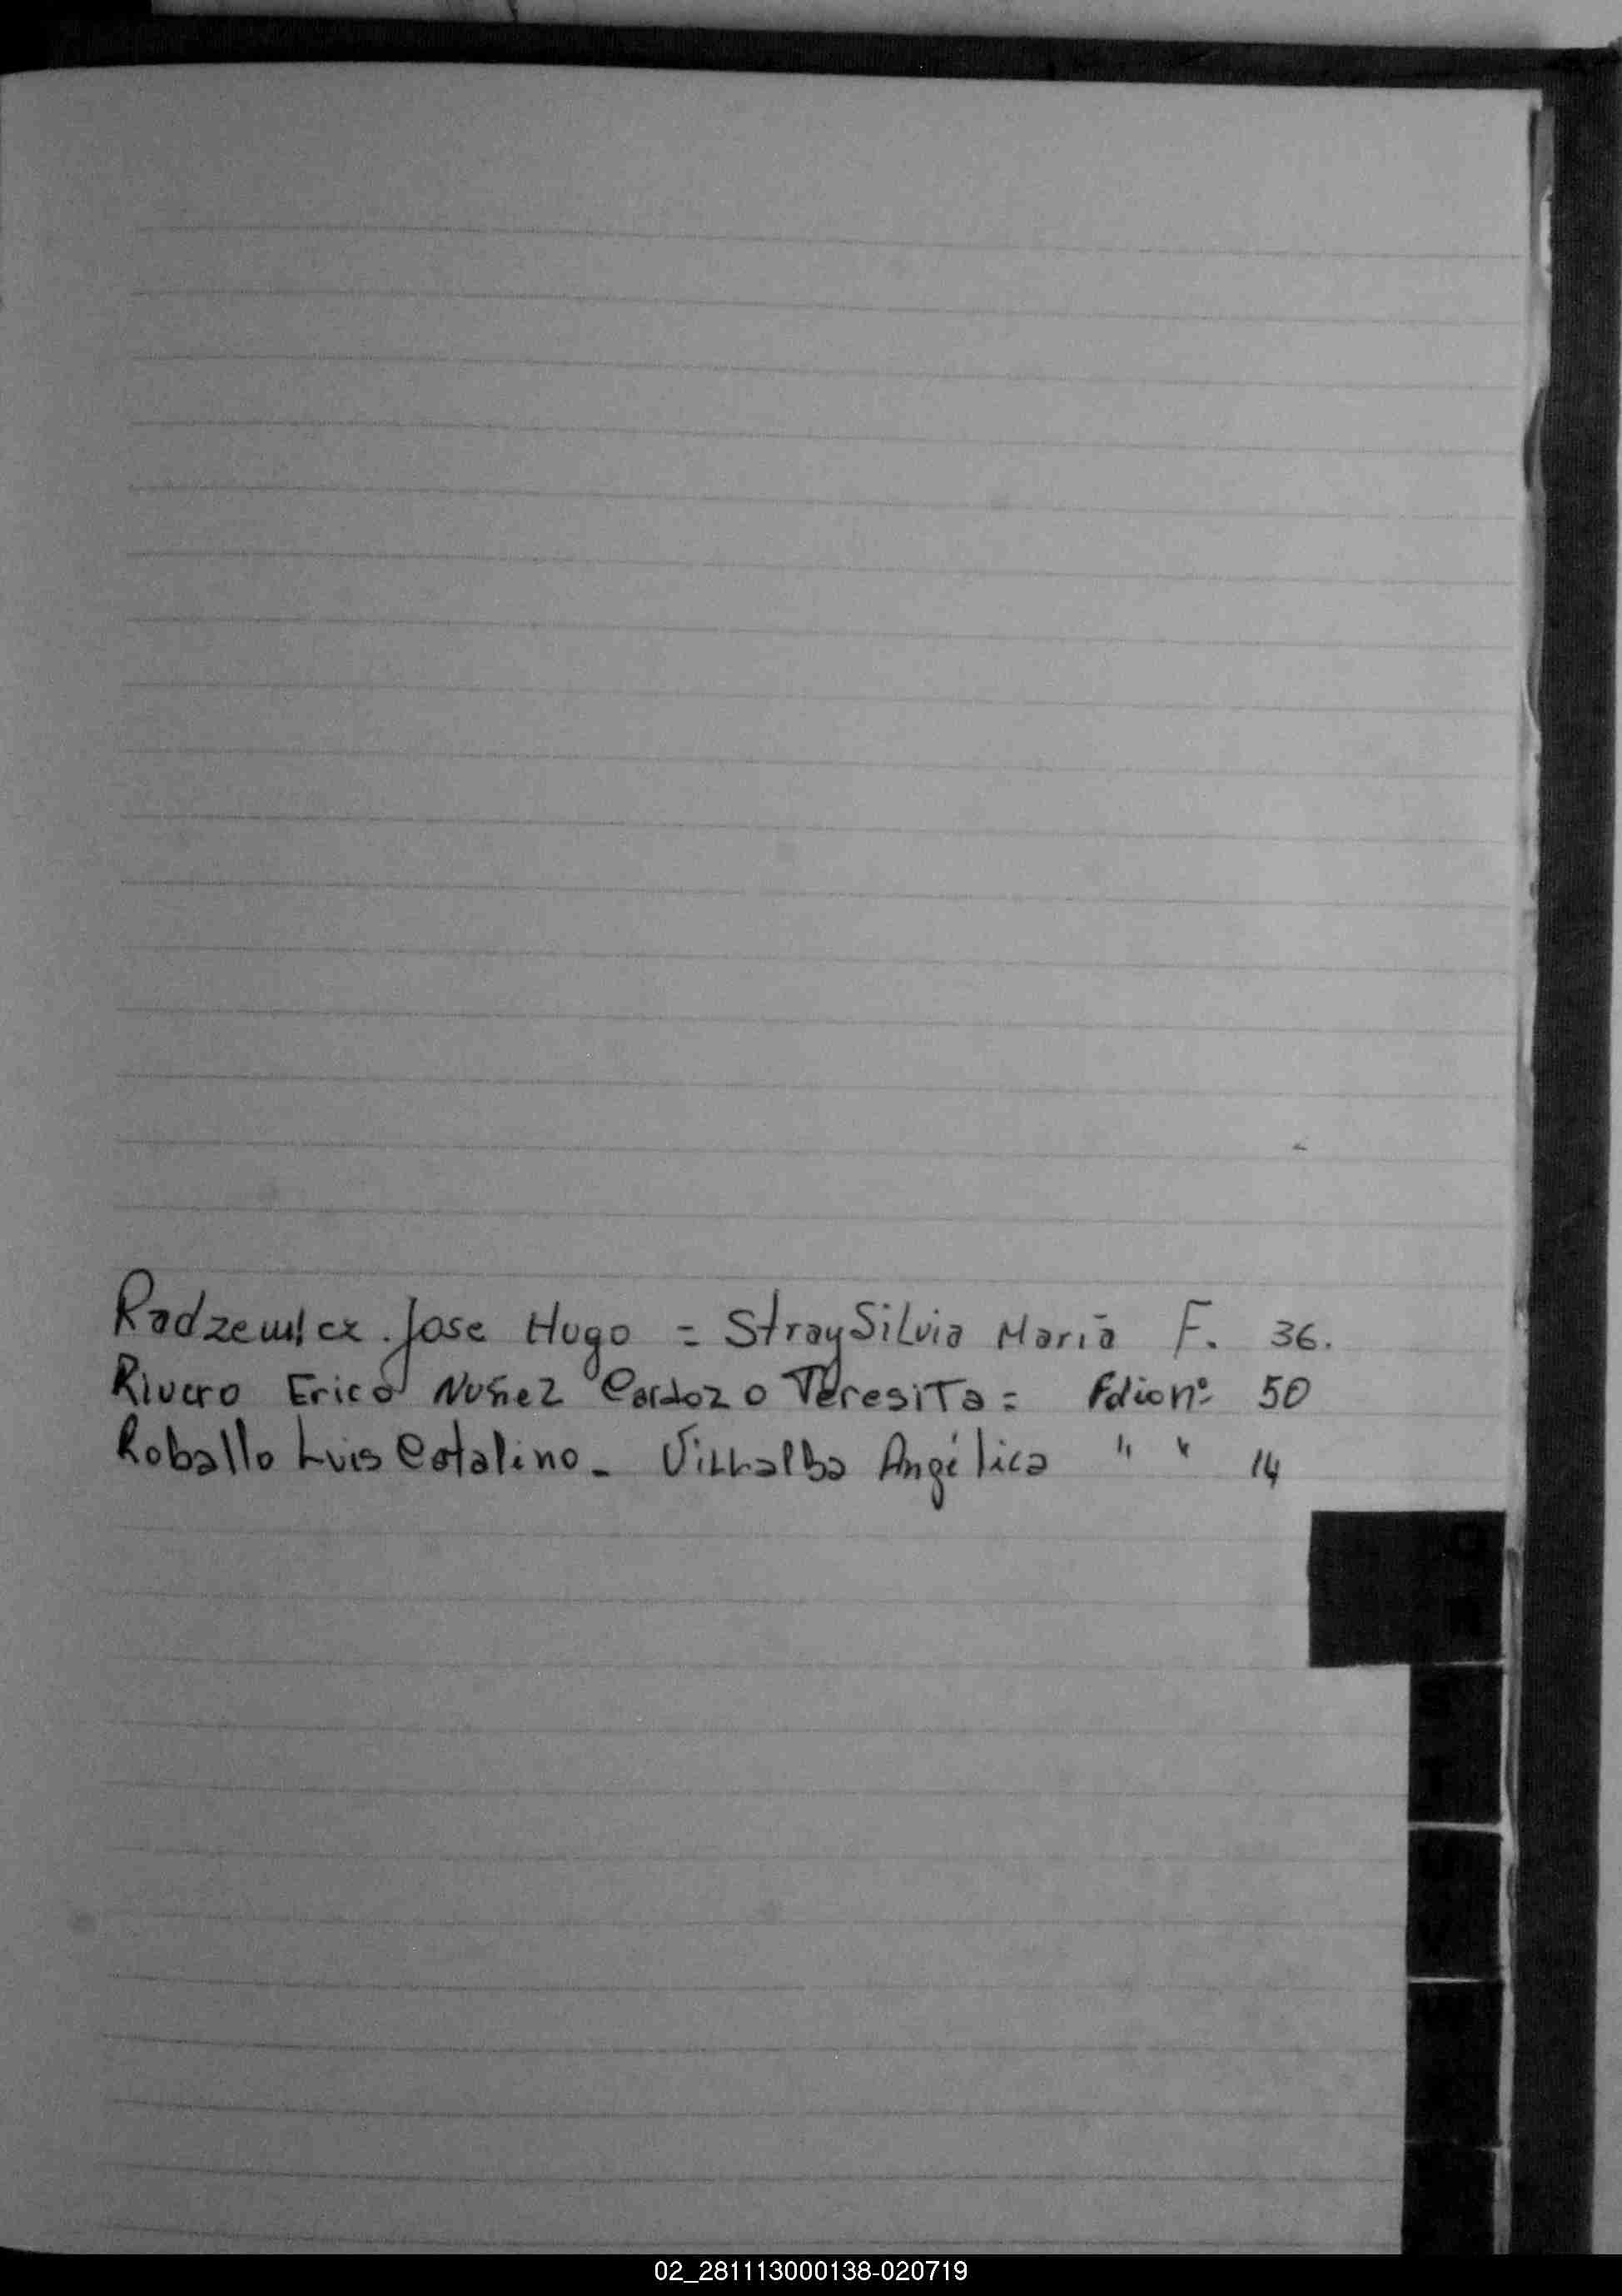 Jose Hugo = Stray Silvia María F. 36.
Rivero Erico Nuñez Cardozo Teresita = Folio nº 50
Roballo Luis Catalino - Villalba Angélica " " 14
02_281113000138-020719